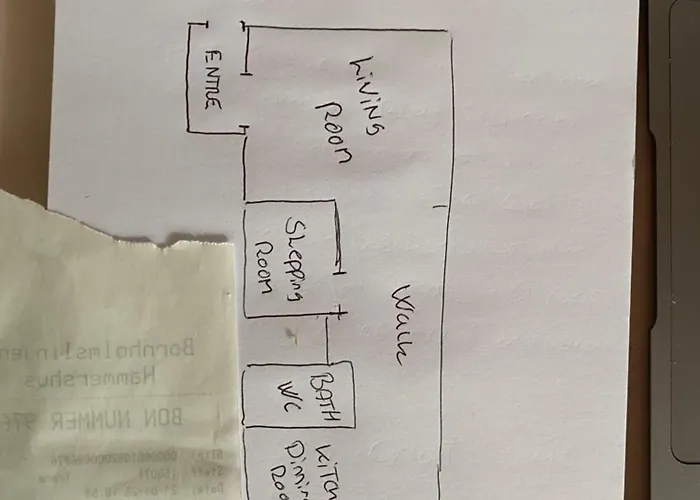 ENTRE
Living
Room
Slepping
Room
Walk
BATH
WC
Kitch
Dinin
Roo
Bornholmslinjen
Hammershus
BON NUMMER 976